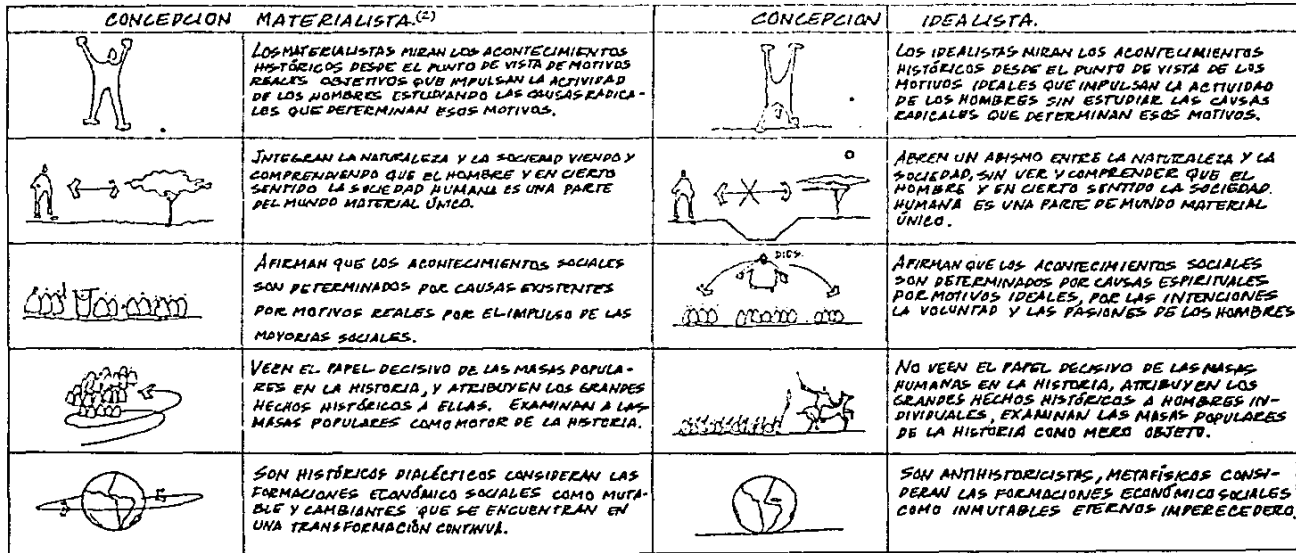 CONCEPCION MATERIALISTA.(2)
LOS MATERIALISTAS MIRAN LOS ACONTECIMIENTOS
HISTÓRICOS DESDE EL PUNTO DE VISTA DE MOTIVOS
REALES OBJETIVOS QUE IMPULSAN LA ACTIVIDAD
DE LOS HOMBRES ESTUDIANDO LAS CAUSAS RADICA-
LES QUE DETERMINAN ESOS MOTIVOS.
INTEGRAN LA NATURALEZA Y LA SOCIEDAD VIENDO Y
COMPRENDIENDO QUE EL HOMBRE Y EN CIERTO
SENTIDO LA SOCIEDAD HUMANA ES UNA PARTE
DEL MUNDO MATERIAL ÚNICO.
AFIRMAN QUE LOS ACONTECIMIENTOS SOCIALES
SON DETERMINADOS POR CAUSAS EXISTENTES
POR MOTIVOS REALES POR EL IMPULSO DE LAS
MAYORIAS SOCIALES.
VEEN EL PAPEL DECISIVO DE LAS MASAS POPULA-
RES EN LA HISTORIA, Y ATRIBUYEN LOS GRANDES
HECHOS HISTÓRICOS A ELLAS. EXAMINAN A LAS
MASAS POPULARES COMO MOTOR DE LA HISTORIA.
SON HISTÓRICOS DIALÉCTICOS CONSIDERAN LAS
FORMACIONES ECONÓMICO SOCIALES COMO MUTA-
BLE Y CAMBIANTES QUE SE ENCUENTRAN EN
UNA TRANSFORMACIÓN CONTINUA.
CONCEPCION IDEALISTA.
LOS IDEALISTAS MIRAN LOS ACONTECIMIENTOS
HISTÓRICOS DESDE EL PUNTO DE VISTA DE LOS
MOTIVOS IDEALES QUE IMPULSAN LA ACTIVIDAD
DE LOS HOMBRES SIN ESTUDIAR LAS CAUSAS
RADICALES QUE DETERMINAN ESOS MOTIVOS.
ABREN UN ABISMO ENTRE LA NATURALEZA Y LA
SOCIEDAD, SIN VER Y COMPRENDER QUE EL
HOMBRE Y EN CIERTO SENTIDO LA SOCIEDAD
HUMANA ES UNA PARTE DE MUNDO MATERIAL
ÚNICO.
DIOS.
AFIRMAN QUE LOS ACONTECIMIENTOS SOCIALES
SON DETERMINADOS POR CAUSAS ESPIRITUALES
POR MOTIVOS IDEALES, POR LAS INTENCIONES
LA VOLUNTAD Y LAS PASIONES DE LOS HOMBRES
NO VEEN EL PAPEL DECISIVO DE LAS MASAS
HUMANAS EN LA HISTORIA, ATRIBUYEN LOS
GRANDES HECHOS HISTÓRICOS A HOMBRES IN-
DIVIDUALES, EXAMINAN LAS MASAS POPULARES
DE LA HISTORIA COMO MERO OBJETO.
SON ANTIHISTORICISTAS, METAFÍSICOS CONSI-
DERAN LAS FORMACIONES ECONÓMICO SOCIALES
COMO INMUTABLES ETERNOS IMPERECEDERO.